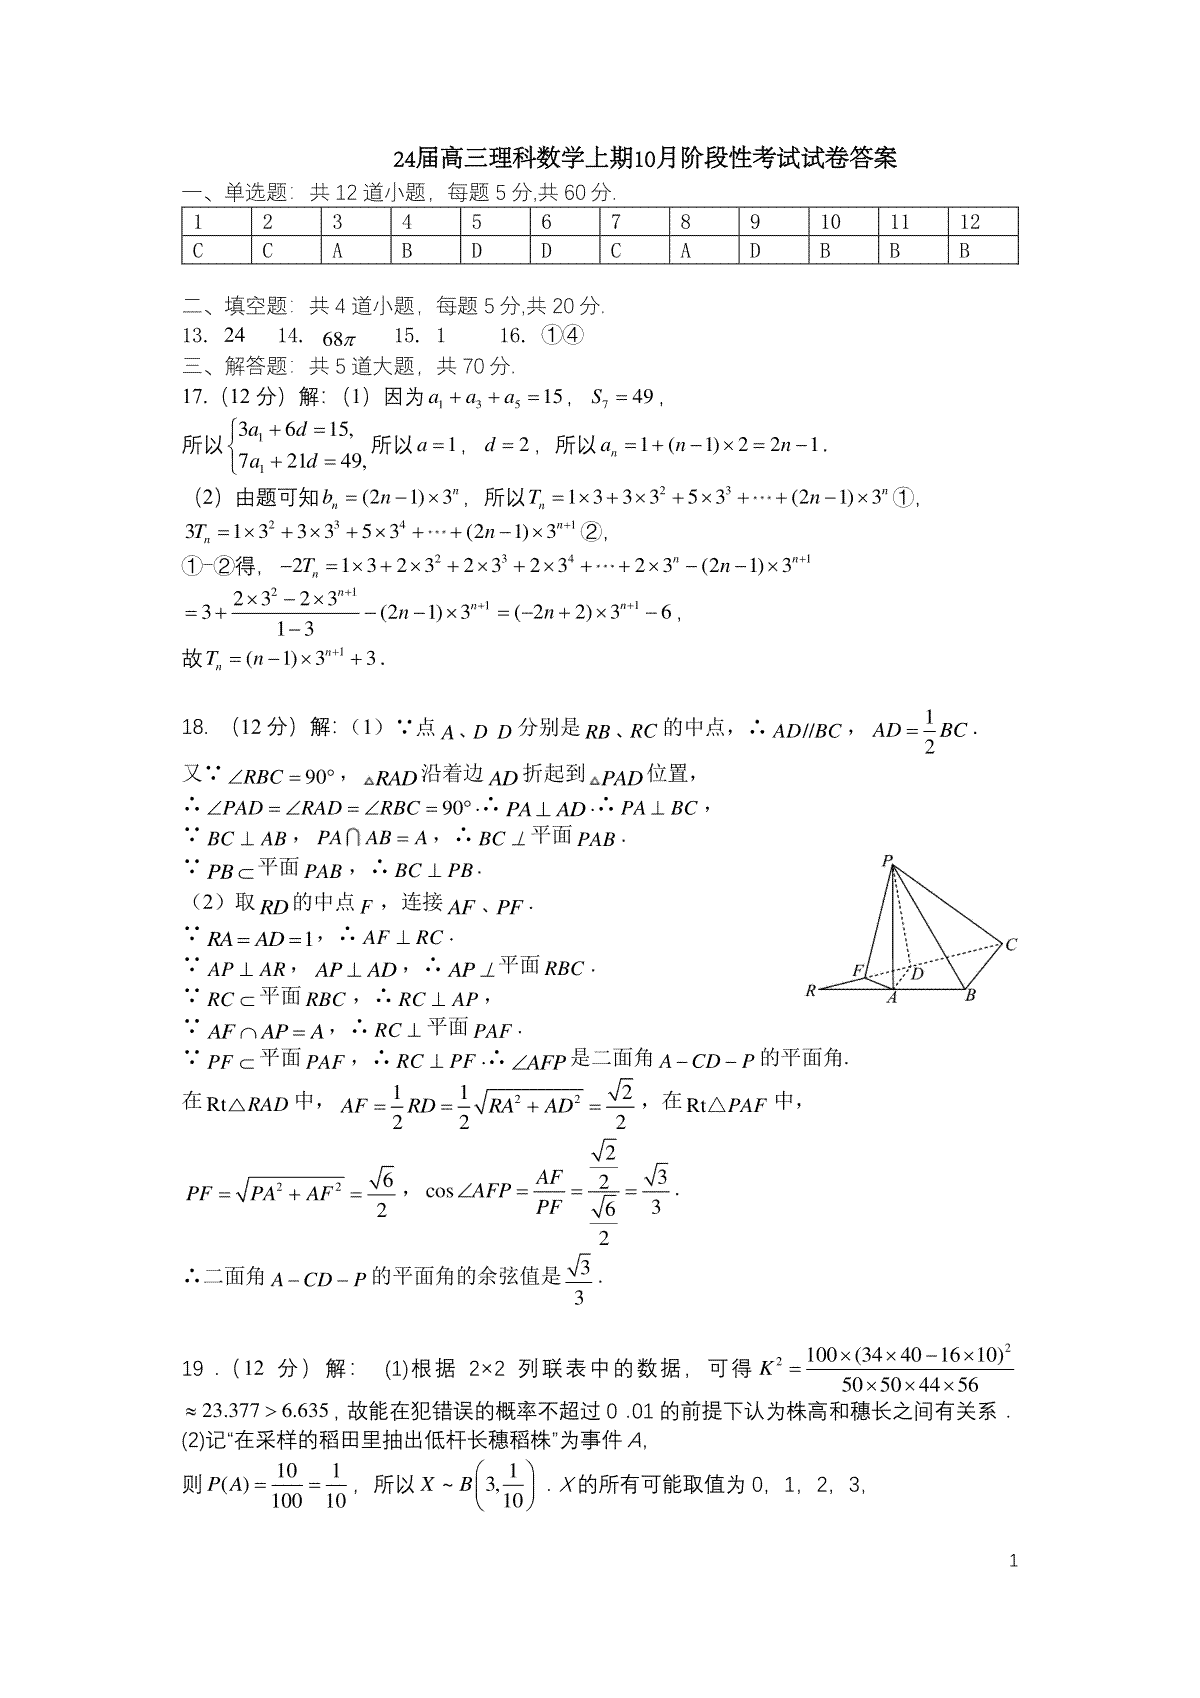 24届高三理科数学上期10月阶段性考试试卷答案
一、单选题：共 12 道小题，每题 5 分,共 60 分.
1 2 3 4 5 6 7 8 9 10 11 12
C C A B D D C A D B B B
二、填空题：共 4 道小题，每题 5 分,共 20 分.
13. 24 14. 68π 15. 1 16. ①④
三、解答题：共 5 道大题，共 70 分.
17.（12 分）解:（1）因为 a₁ + a₃ + a₅ = 15， S₇ = 49 ,
所以 {3a₁ + 6d = 15, 7a₁ + 21d = 49, 所以 a = 1， d = 2，所以 aₙ = 1 + (n − 1) × 2 = 2n − 1 .
（2）由题可知 bₙ = (2n − 1) × 3ⁿ，所以 Tₙ = 1×3 + 3×3² + 5×3³ + ⋯ + (2n − 1) × 3ⁿ ①,
3Tₙ = 1×3² + 3×3³ + 5×3⁴ + ⋯ + (2n − 1) × 3ⁿ⁺¹ ②,
①-②得， −2Tₙ = 1×3 + 2×3² + 2×3³ + 2×3⁴ + ⋯ + 2×3ⁿ − (2n − 1) × 3ⁿ⁺¹
= 3 + (2×3² − 2×3ⁿ⁺¹)/(1 − 3) − (2n − 1) × 3ⁿ⁺¹ = (−2n + 2) × 3ⁿ⁺¹ − 6 ,
故 Tₙ = (n − 1) × 3ⁿ⁺¹ + 3 .
18. （12 分）解:（1）∵点 A、D D 分别是 RB、RC 的中点，∴ AD//BC， AD = 1/2 BC .
又∵ ∠RBC = 90°， △RAD 沿着边 AD 折起到 △PAD 位置，
∴ ∠PAD = ∠RAD = ∠RBC = 90° .∴ PA ⊥ AD .∴ PA ⊥ BC，
∵ BC ⊥ AB， PA ∩ AB = A，∴ BC ⊥ 平面 PAB .
∵ PB ⊂ 平面 PAB，∴ BC ⊥ PB .
（2）取 RD 的中点 F，连接 AF、PF .
∵ RA = AD = 1，∴ AF ⊥ RC .
∵ AP ⊥ AR， AP ⊥ AD，∴ AP ⊥ 平面 RBC .
∵ RC ⊂ 平面 RBC，∴ RC ⊥ AP，
∵ AF ∩ AP = A，∴ RC ⊥ 平面 PAF .
∵ PF ⊂ 平面 PAF，∴ RC ⊥ PF .∴ ∠AFP 是二面角 A − CD − P 的平面角.
P
C
F
D
R
A
B
在 Rt△RAD 中， AF = 1/2 RD = 1/2 √(RA² + AD²) = √2/2，在 Rt△PAF 中，
PF = √(PA² + AF²) = √6/2， cos∠AFP = AF/PF = (√2/2)/(√6/2) = √3/3 .
∴二面角 A − CD − P 的平面角的余弦值是 √3/3 .
19 .（12 分）解： (1)根据 2×2 列联表中的数据，可得 K² = 100×(34×40−16×10)²/(50×50×44×56)
≈ 23.377 > 6.635，故能在犯错误的概率不超过 0 .01 的前提下认为株高和穗长之间有关系 .
(2)记“在采样的稻田里抽出低杆长穗稻株”为事件 A，
则 P(A) = 10/100 = 1/10，所以 X ~ B(3, 1/10) . X 的所有可能取值为 0，1，2，3，
1